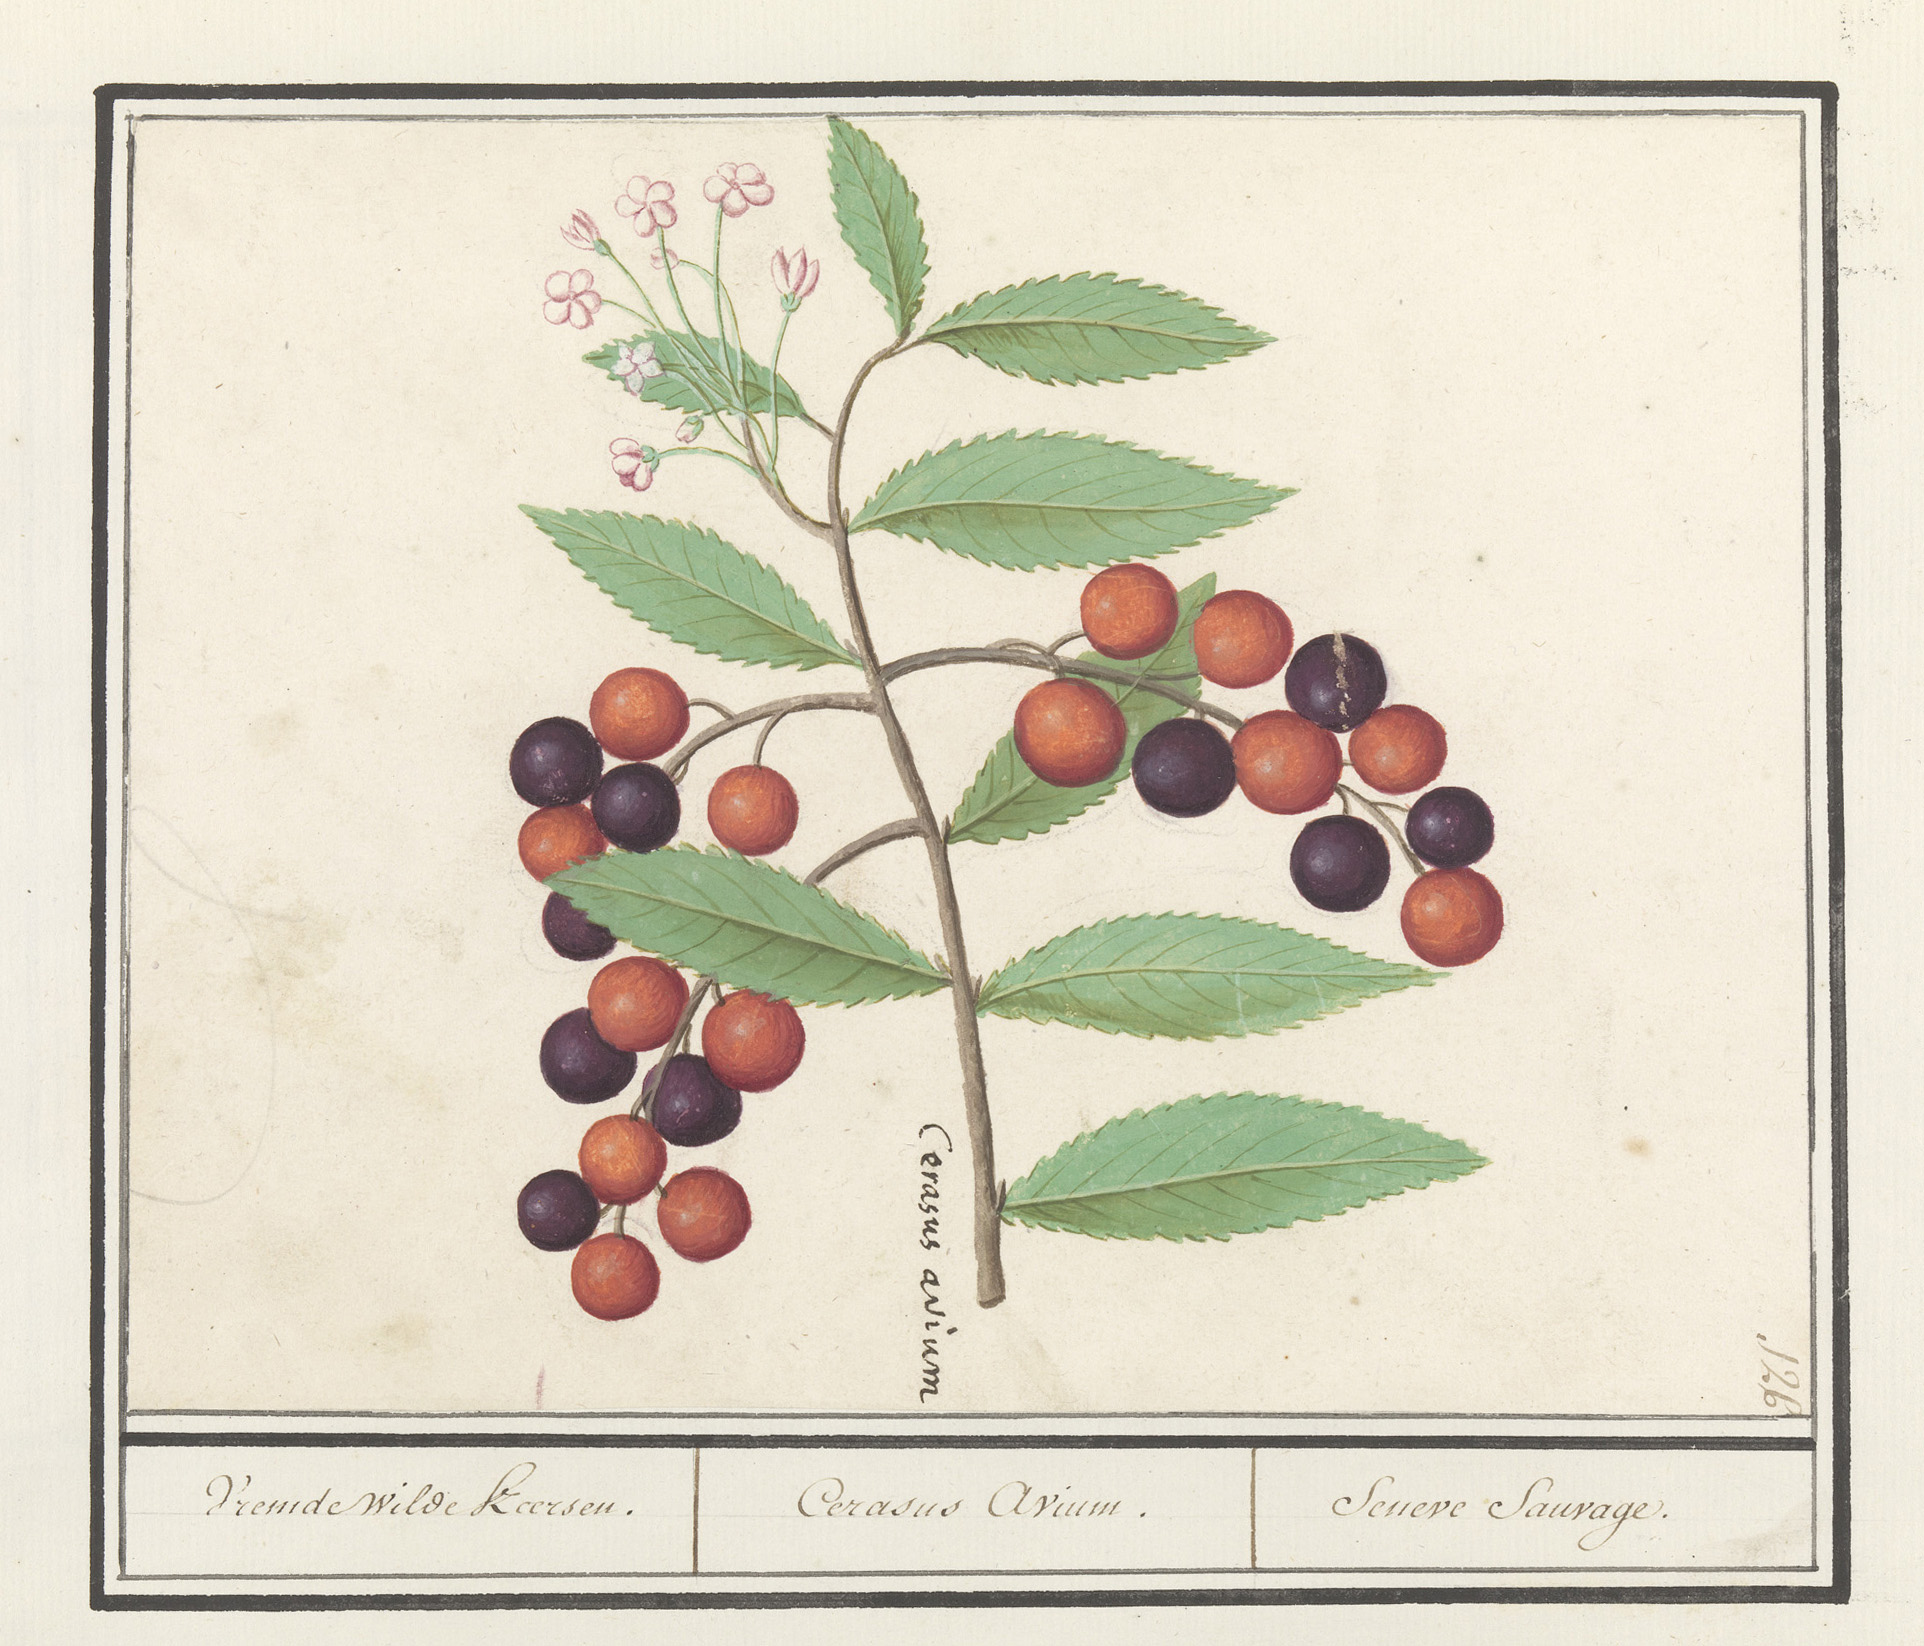 Cerasus avium
126
Vremde Wilde Keersen.
Cerasus Avium.
Seneve Sauvage.